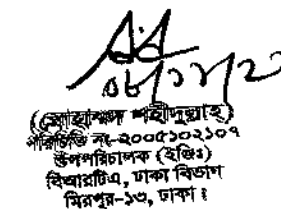 ০৮/১১/২
(মোহাম্মদ শহীদুল্লাহ)
পরিচিতি নং-২০০৫১০২১০৭
উপপরিচালক (ইঞ্জিঃ)
বিআরটিএ, ঢাকা বিভাগ
মিরপুর-১৩, ঢাকা।